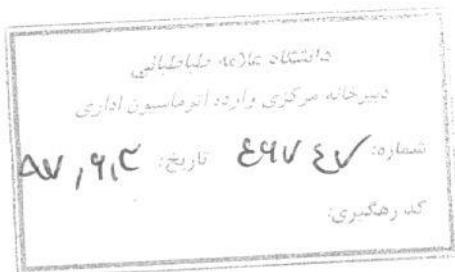 دانشگاه علامه طباطبائی
دبیرخانه مرکزی وارده اتوماسیون اداری
شماره: ۴۶۷۴۷ تاریخ: ۹۷,۶,۴
کد رهگیری: